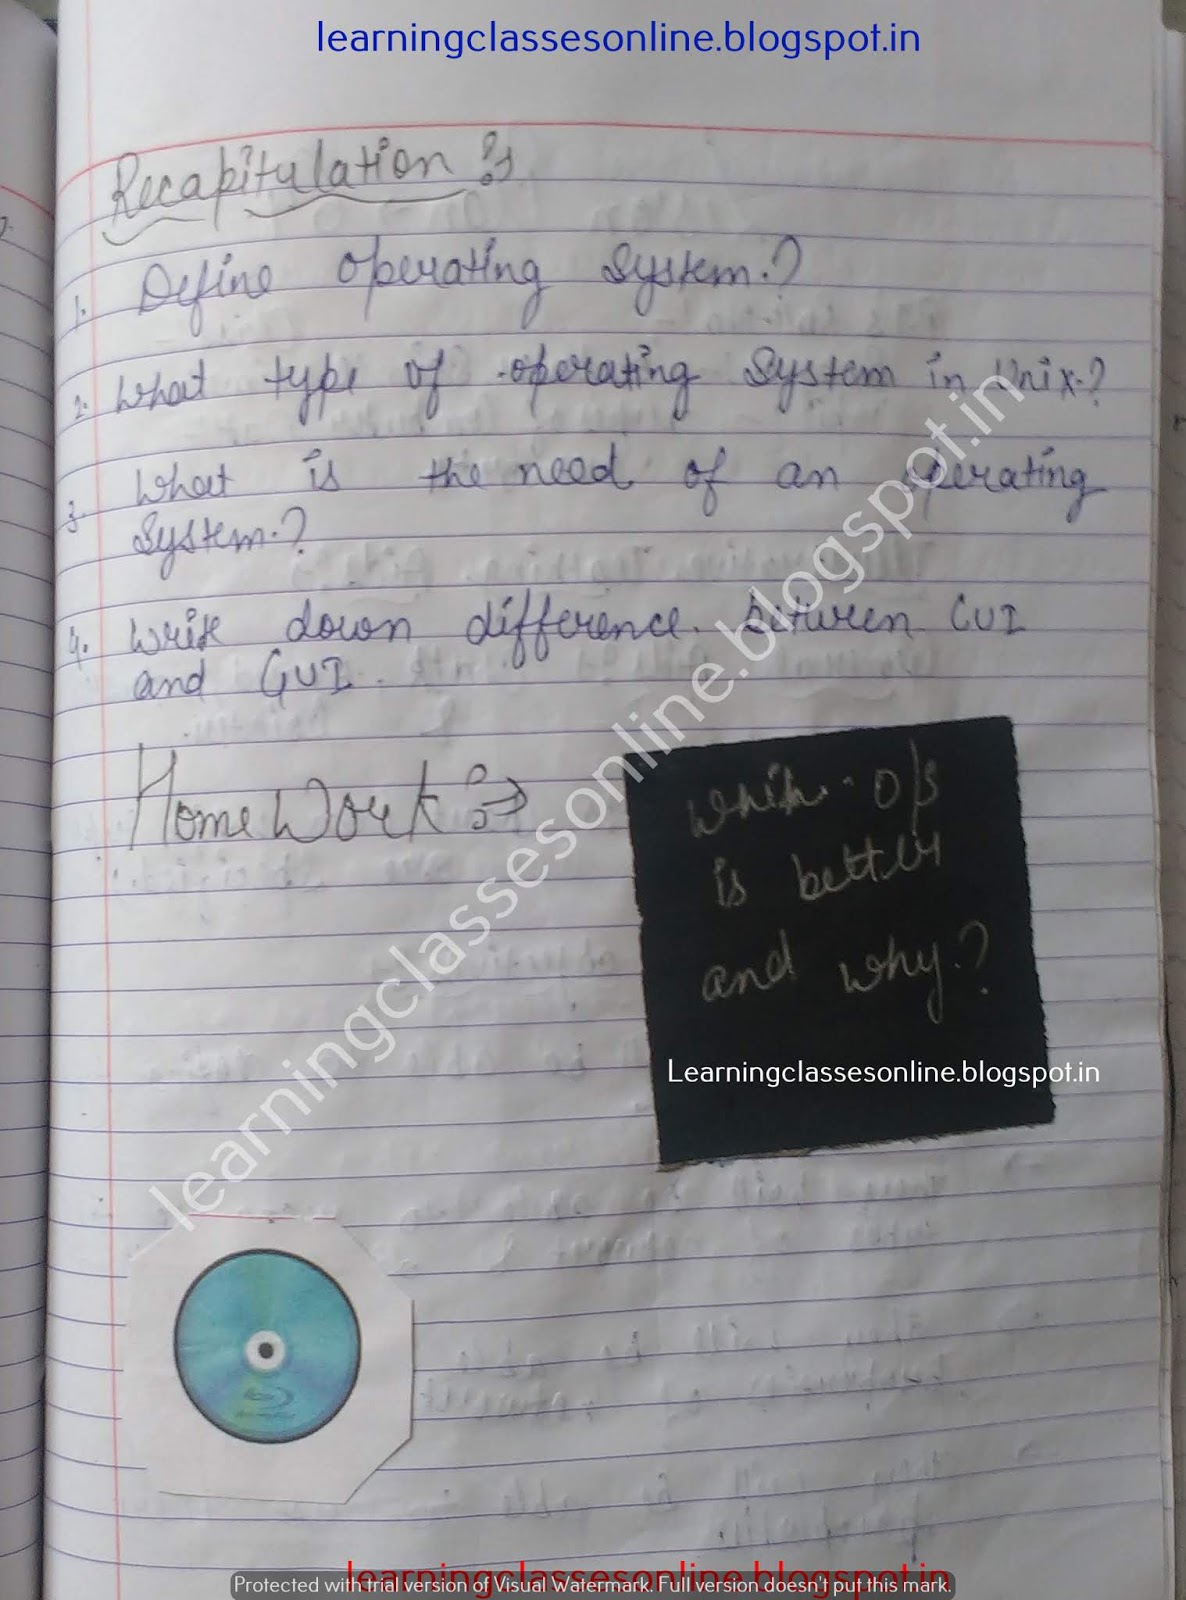 learningclassesonline.blogspot.in
Recapitulation :→
1. Define operating system.?
2. What type of operating system in Unix.?
3. What is the need of an operating
system.?
4. Write down difference between CUI
and GUI.
Home Work :⇒
Which o/s
is better
and why.?
Learningclassesonline.blogspot.in
learningclassesonline.blogspot.in
learningclassesonline.blogspot.in
Protected with trial version of Visual Watermark. Full version doesn't put this mark.